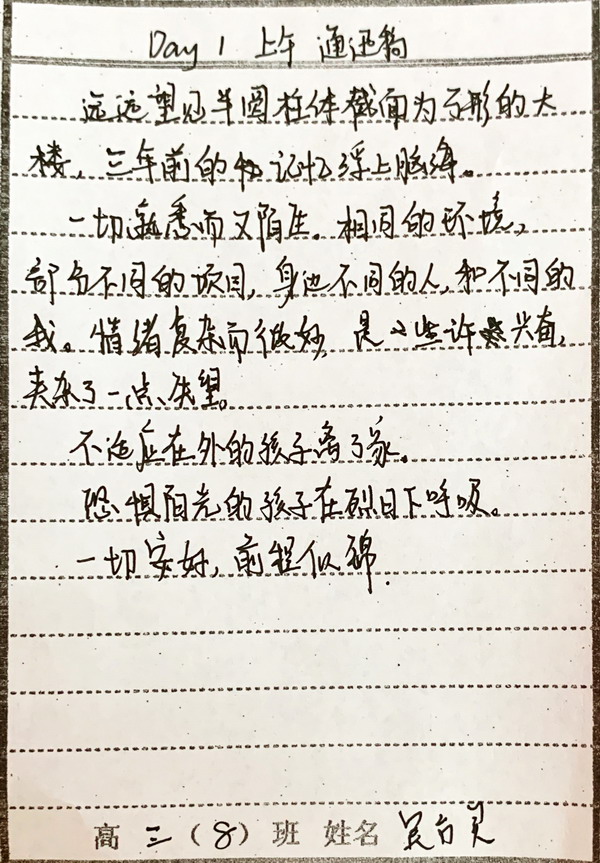 Day 1 上午 通迅稿
远远望见半圆柱体截面为弓形的大
楼,三年前的记忆浮上脑海。
一切熟悉而又陌生。相同的环境,
部分不同的项目,身边不同的人,和不同的
我。情绪复杂而微妙,是些许兴奋,
夹杂了一点失望。
不适应在外的孩子离了家。
恐惧阳光的孩子在烈日下呼吸。
一切安好,前程似锦.
高 三 (8) 班 姓名